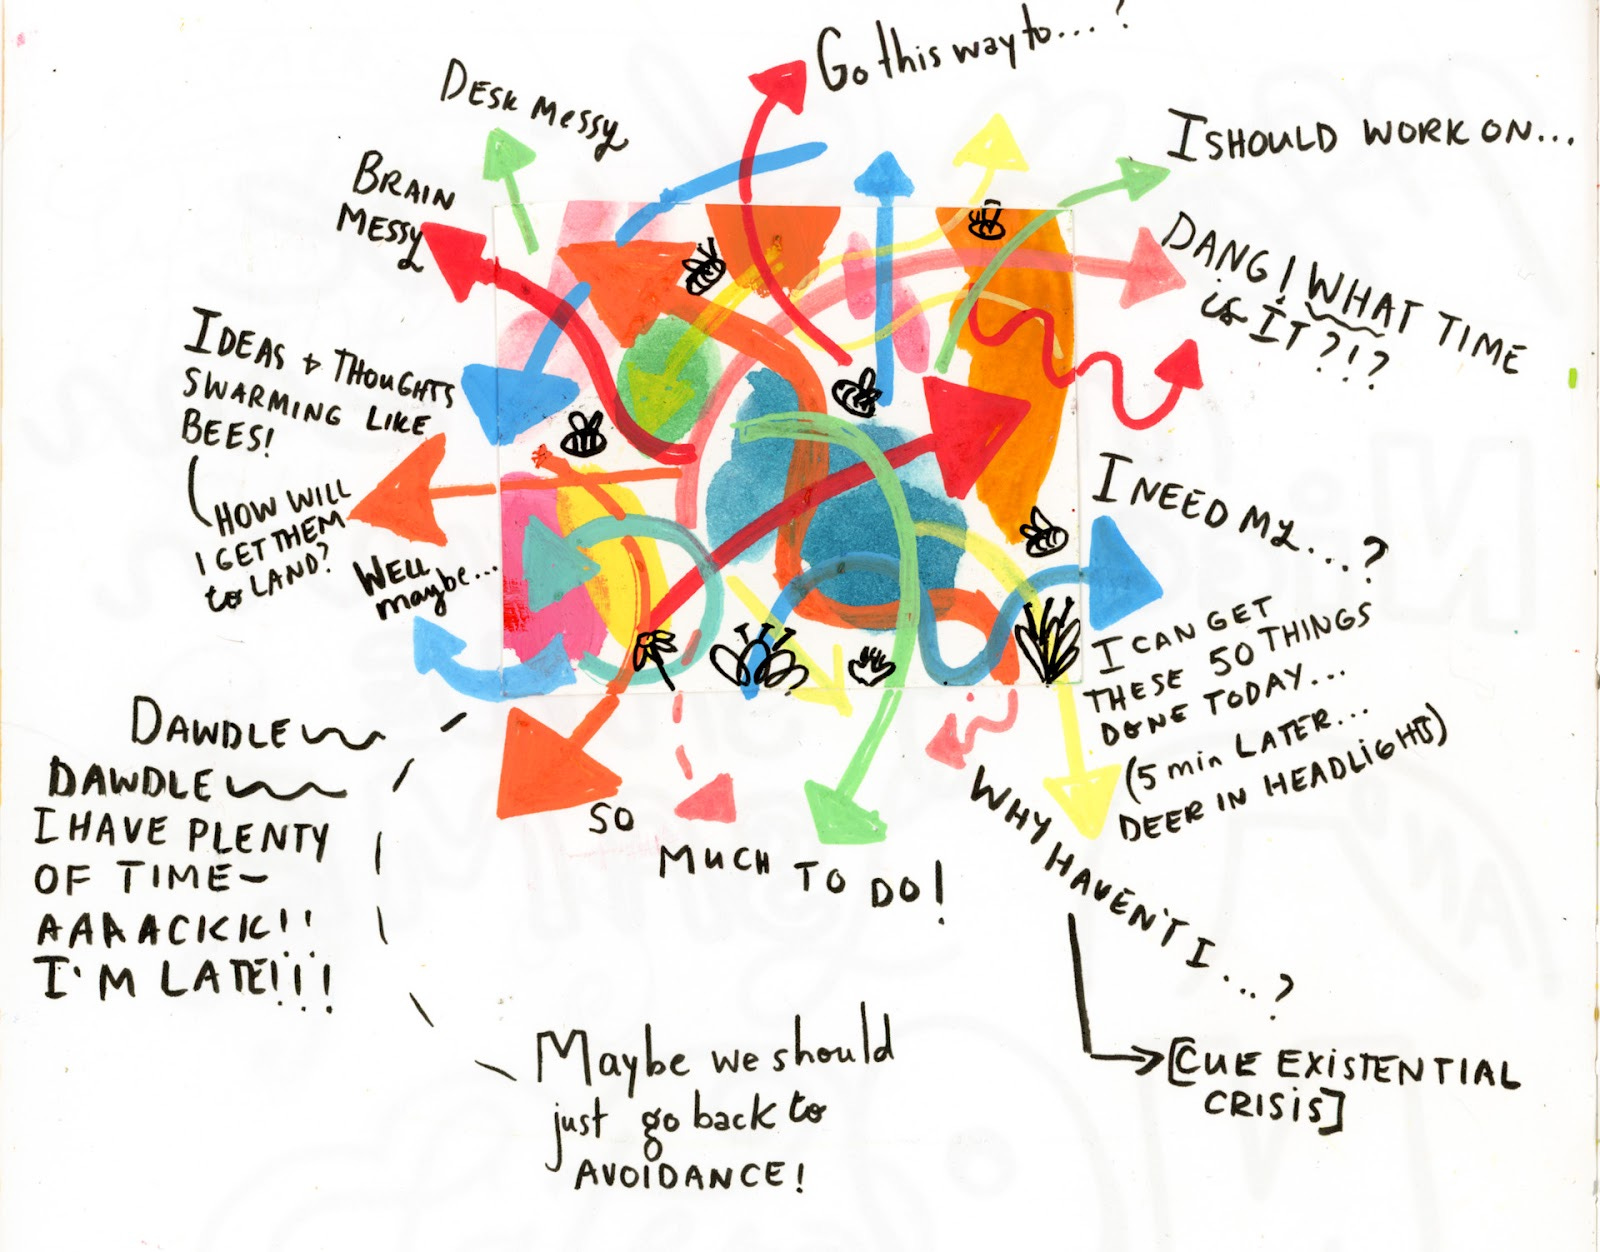 Go this way to....?
DESK MESSY
I SHOULD WORK ON...
BRAIN
MESSY
DANG! WHAT TIME
is IT?!?
IDEAS + THOUGHTS
SWARMING LIKE
BEES!
HOW WILL
I GET THEM
to LAND?
WELL
maybe...
I NEED MY...?
I CAN GET
THESE 50 THINGS
DONE TODAY...
(5 min LATER...
DEER IN HEADLIGHTS)
DAWDLE
DAWDLE
I HAVE PLENTY
OF TIME-
AAAACKK!!
I'M LATE!!!
SO
MUCH TO DO!
WHY HAVEN'T I...?
[CUE EXISTENTIAL
CRISIS]
Maybe we should
just go back to
AVOIDANCE!